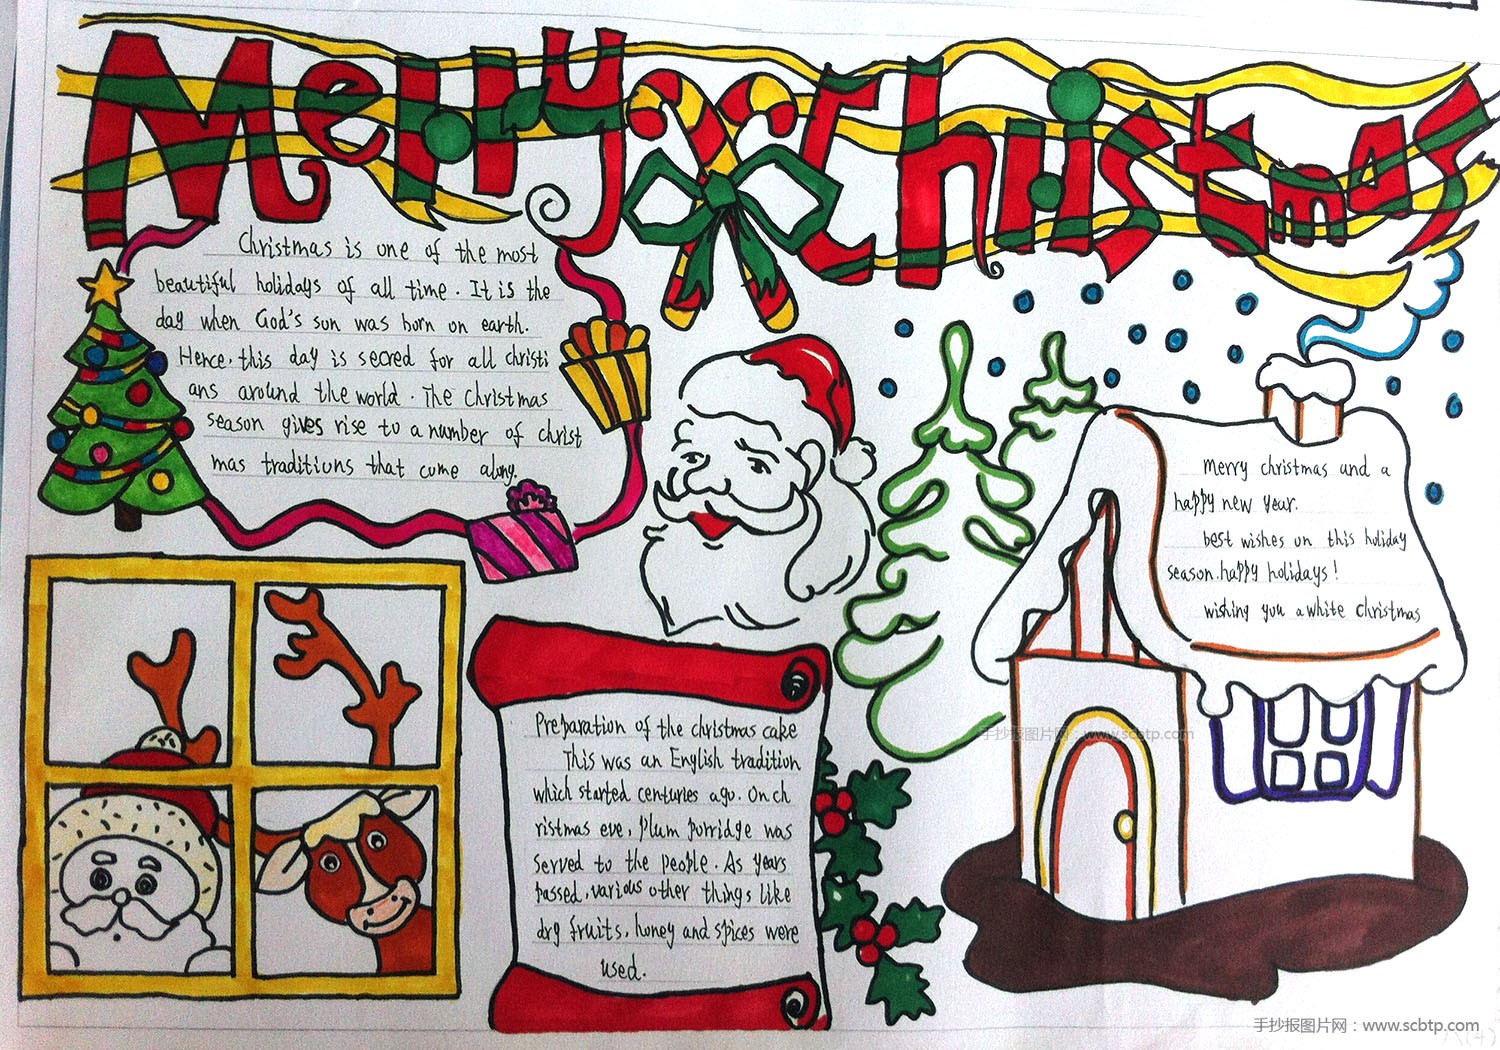 Merry Christmas
Christmas is one of the most
beautiful holidays of all time. It is the
day when God's son was born on earth.
Hence, this day is secred for all christi
ans around the world. The christmas
season gives rise to a number of christ
mas traditions that come along.
merry christmas and a
happy new year.
best wishes on this holiday
season.happy holidays!
wishing you a white christmas
Preparation of the christmas cake
This was an English tradition
which started centuries ago. On ch
ristmas eve, plum porridge was
served to the people. As years
passed, various other things like
dry fruits, honey and spices were
used.
手抄报图片网：www.scbtp.com
手抄报图片网：www.scbtp.com